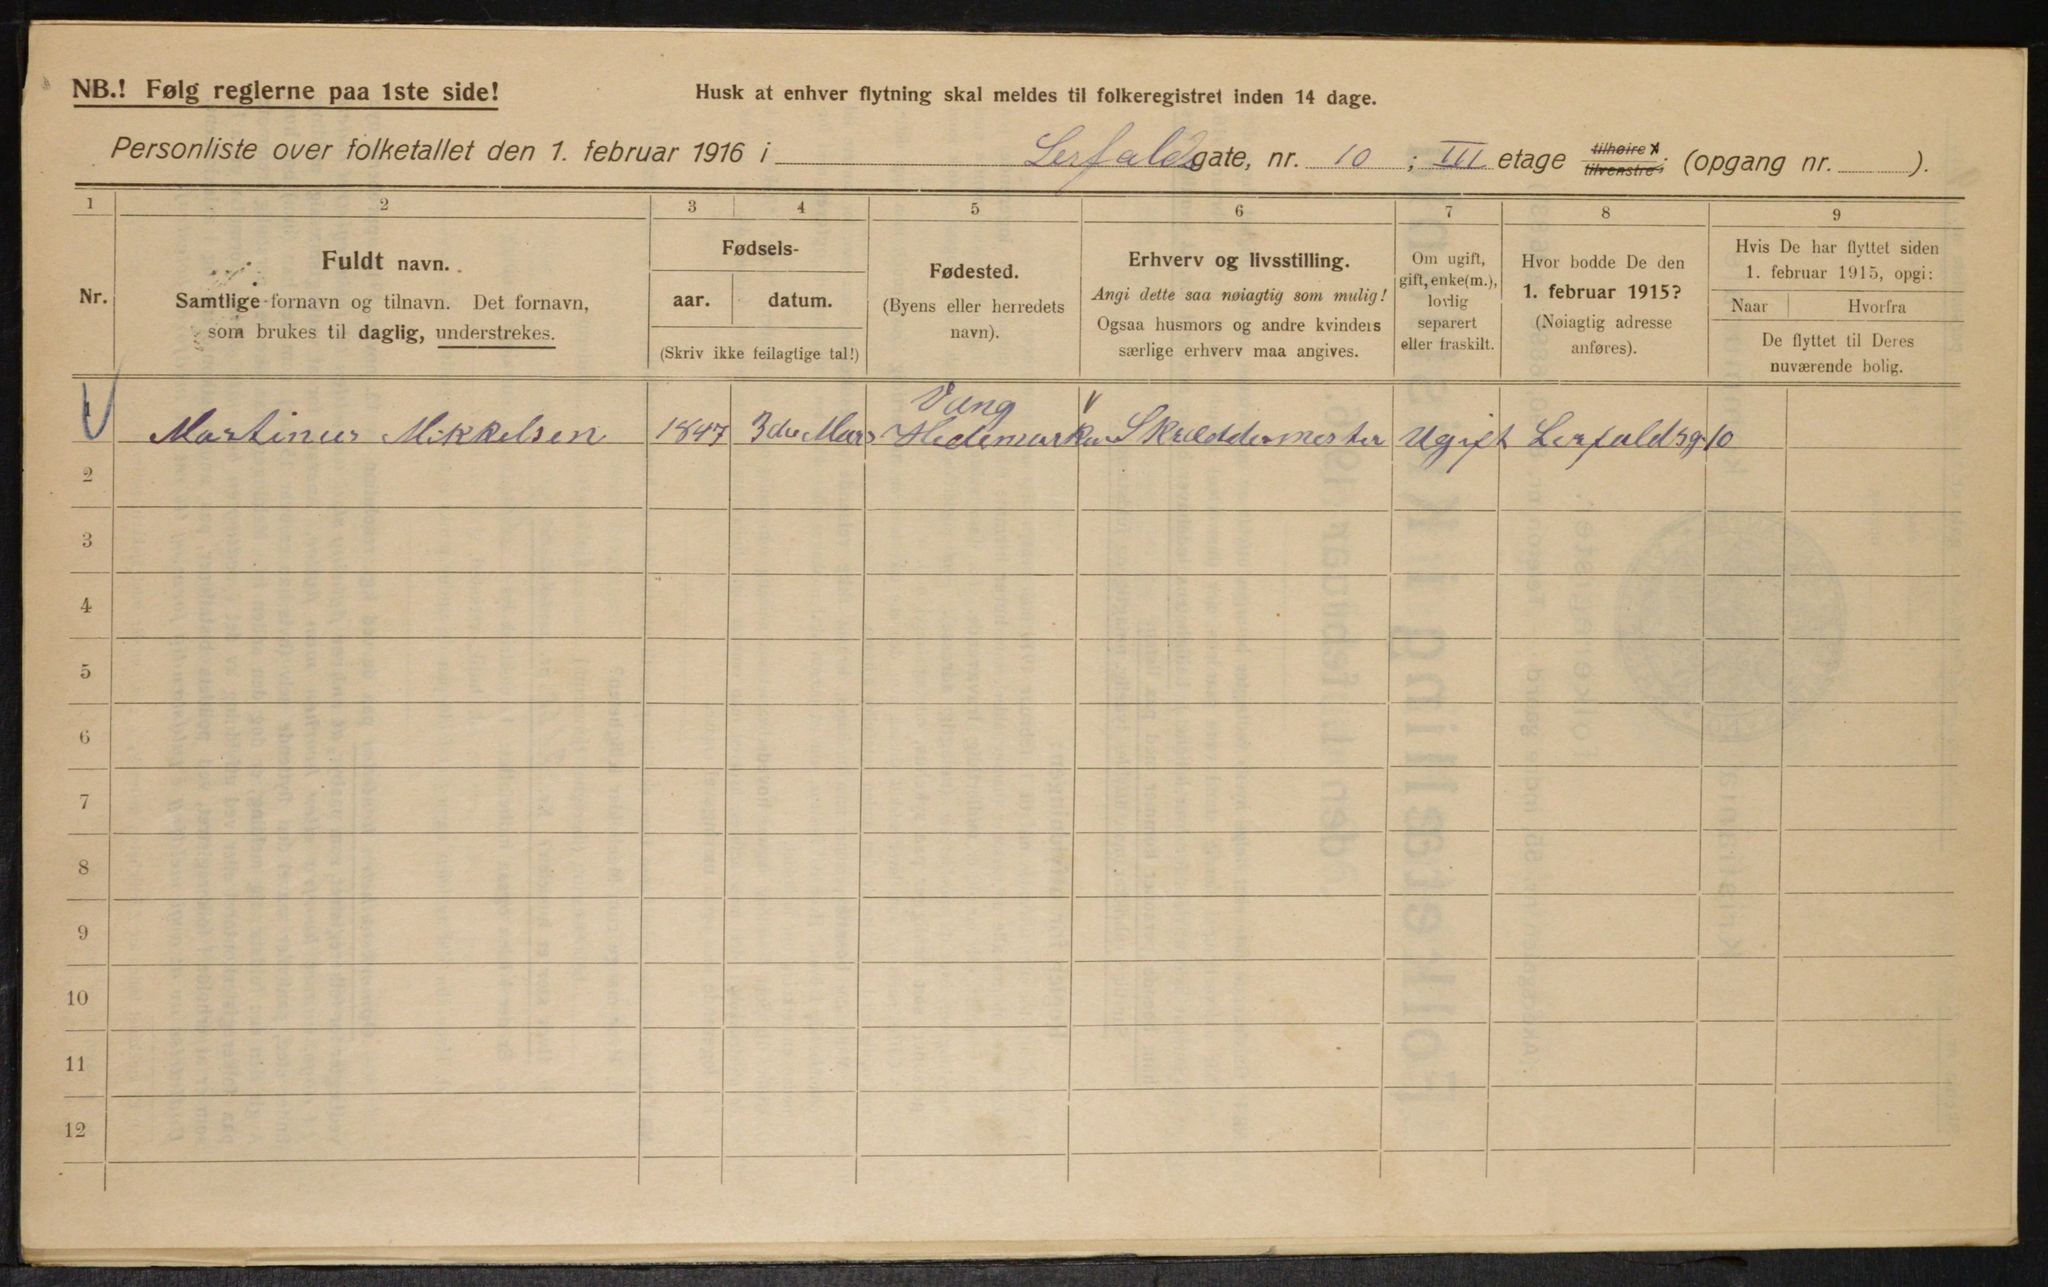 NB.! Følg reglerne paa 1ste side!
Husk at enhver flytning skal meldes til folkeregistret inden 14 dage.
Personliste over folketallet den 1. februar 1916 i Lerfalds gate, nr. 10 ; III etage tilhøire tilvenstre ; (opgang nr. ).
1 2 3 4 5 6 7 8 9
Nr.
Fuldt navn.
Samtlige fornavn og tilnavn. Det fornavn,
som brukes til daglig, understrekes.
Fødsels-
aar. datum.
(Skriv ikke feilagtige tal!)
Fødested.
(Byens eller herredets
navn).
Erhverv og livsstilling.
Angi dette saa nøiagtig som mulig!
Ogsaa husmors og andre kvinders
særlige erhverv maa angives.
Om ugift,
gift, enke(m.),
lovlig
separert
eller fraskilt.
Hvor bodde De den
1. februar 1915?
(Nøiagtig adresse
anføres).
Hvis De har flyttet siden
1. februar 1915, opgi:
Naar Hvorfra
De flyttet til Deres
nuværende bolig.
Vang
1 Martinus Mikkelsen 1847 3die Mars Hedemarken Skræddermester Ugift Lerfaldsg. 10
2
3
4
5
6
7
8
9
10
11
12